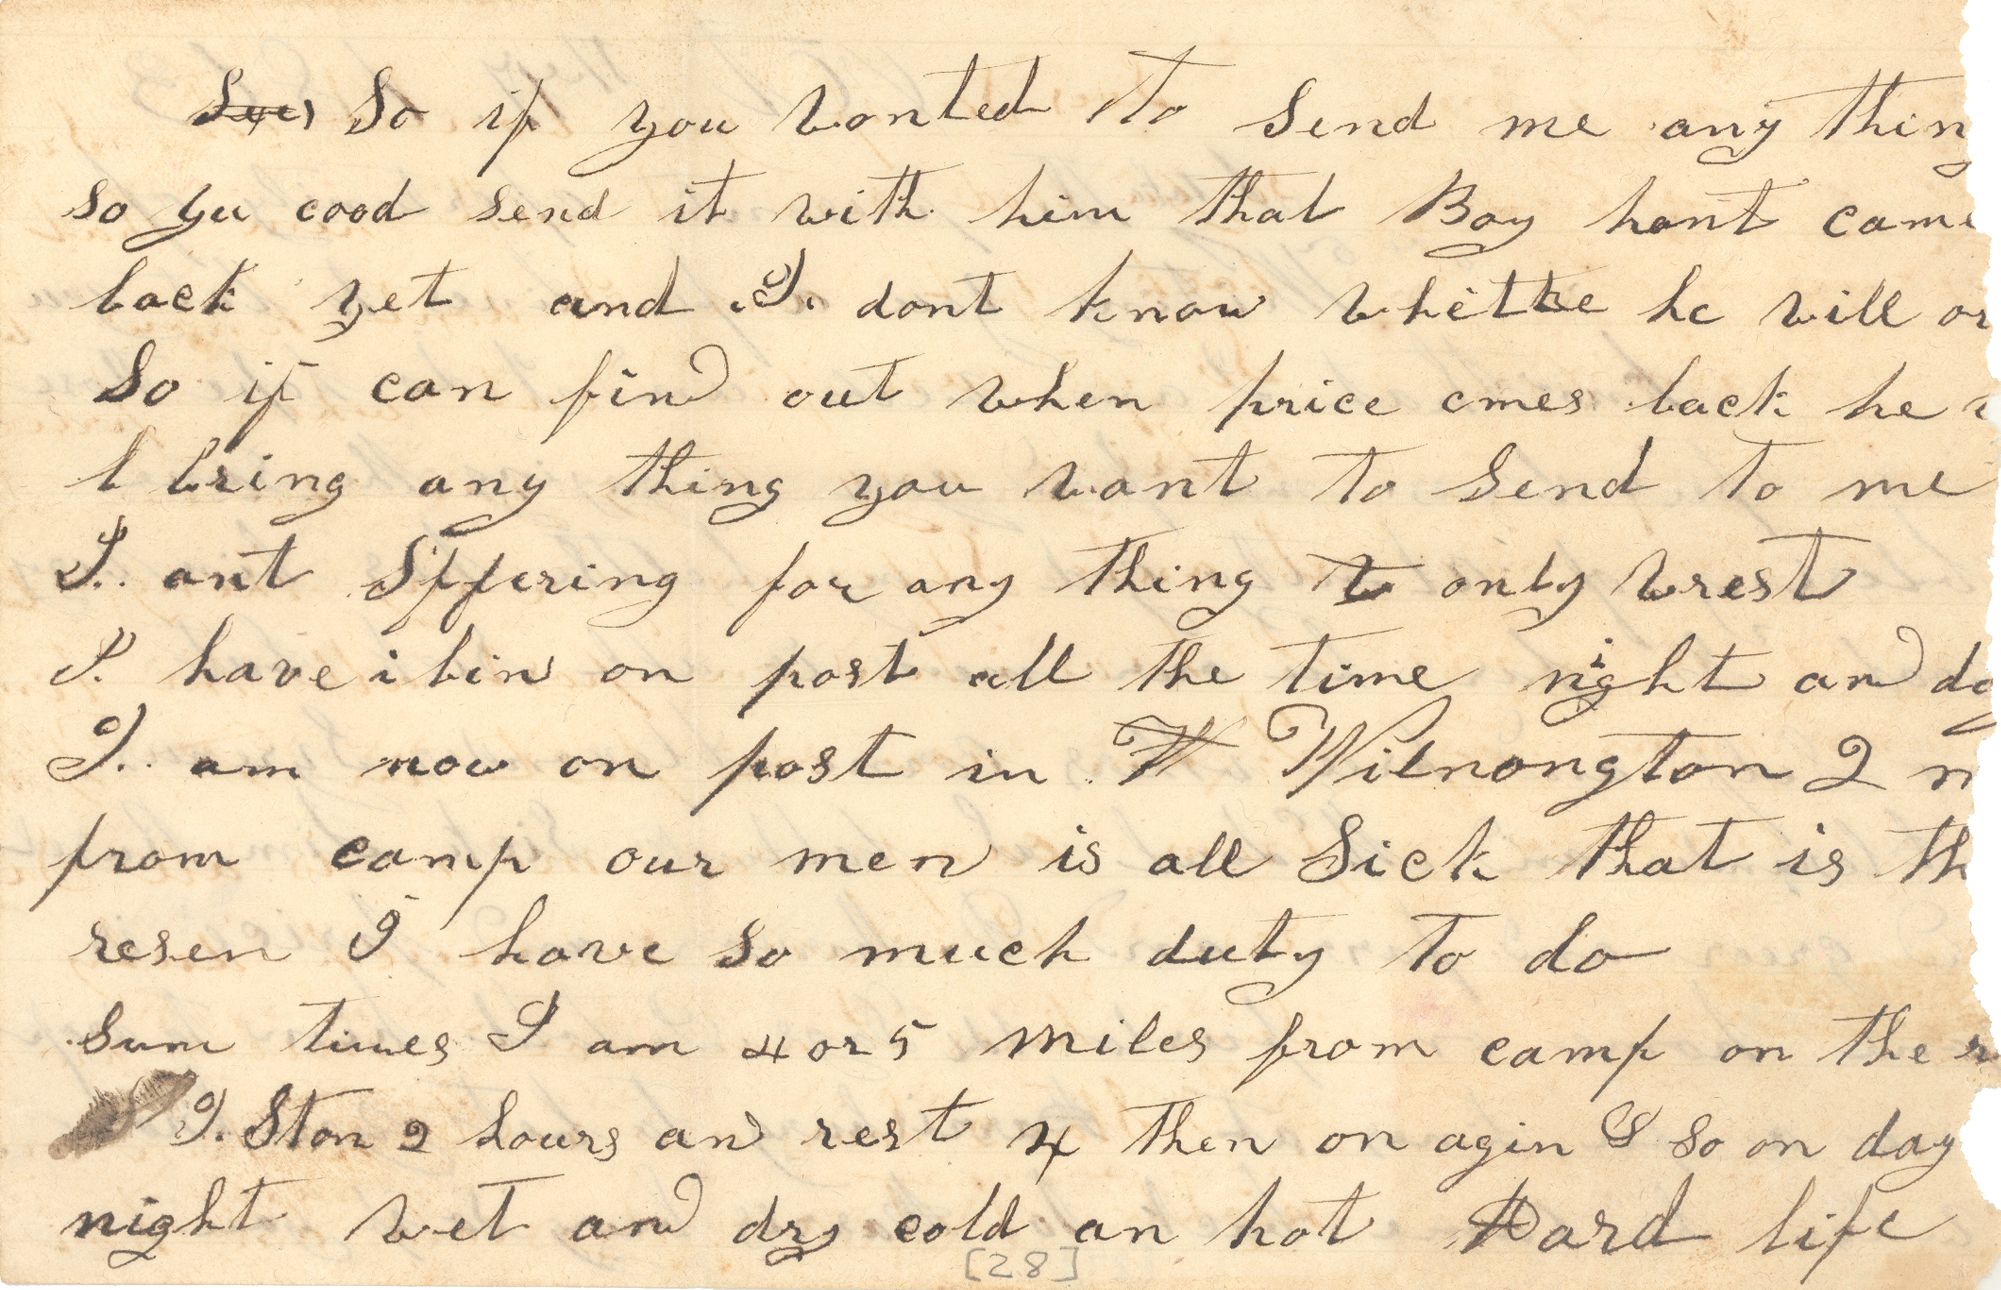 So if you wonted to Send me any thing
so yu cood send it with him that Boy hant came
back yet and I. dont know whitte he will or
So if can find out when price cmes back he
l bring any thing you want to Send to me
I. ant Sffering for any thing to only wrest
I. have i bin on post all the time night and day
I. am now on post in W Wilnongton 2 m
from camp our men is all Sick that is th
resen I have so much duty to do
Sum times I am 4 or 5 miles from camp on the r
I. Ston 2 hours and rest 4 then on agin & so on day
night wet and dry cold an hot Hard life
[28]